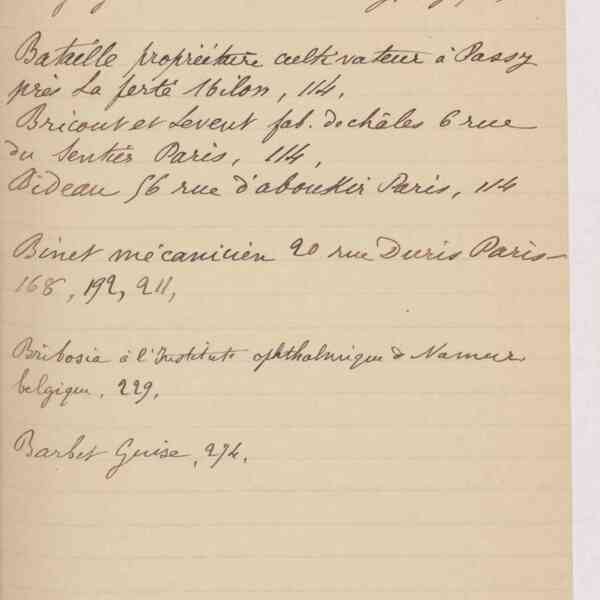 Bataille propriétaire cultivateur à Passy
près La ferté Milon, 114,
Bricout et Levent fab. de châles 6 rue
du Sentier Paris, 114,
Bideau 56 rue d'aboukir Paris, 114
Binet mécanicien 20 rue Duris Paris
168, 192, 211,
Bribosia à l'Institute ophthalmique de Namur
belgique, 229,
Barbet Guise, 274.